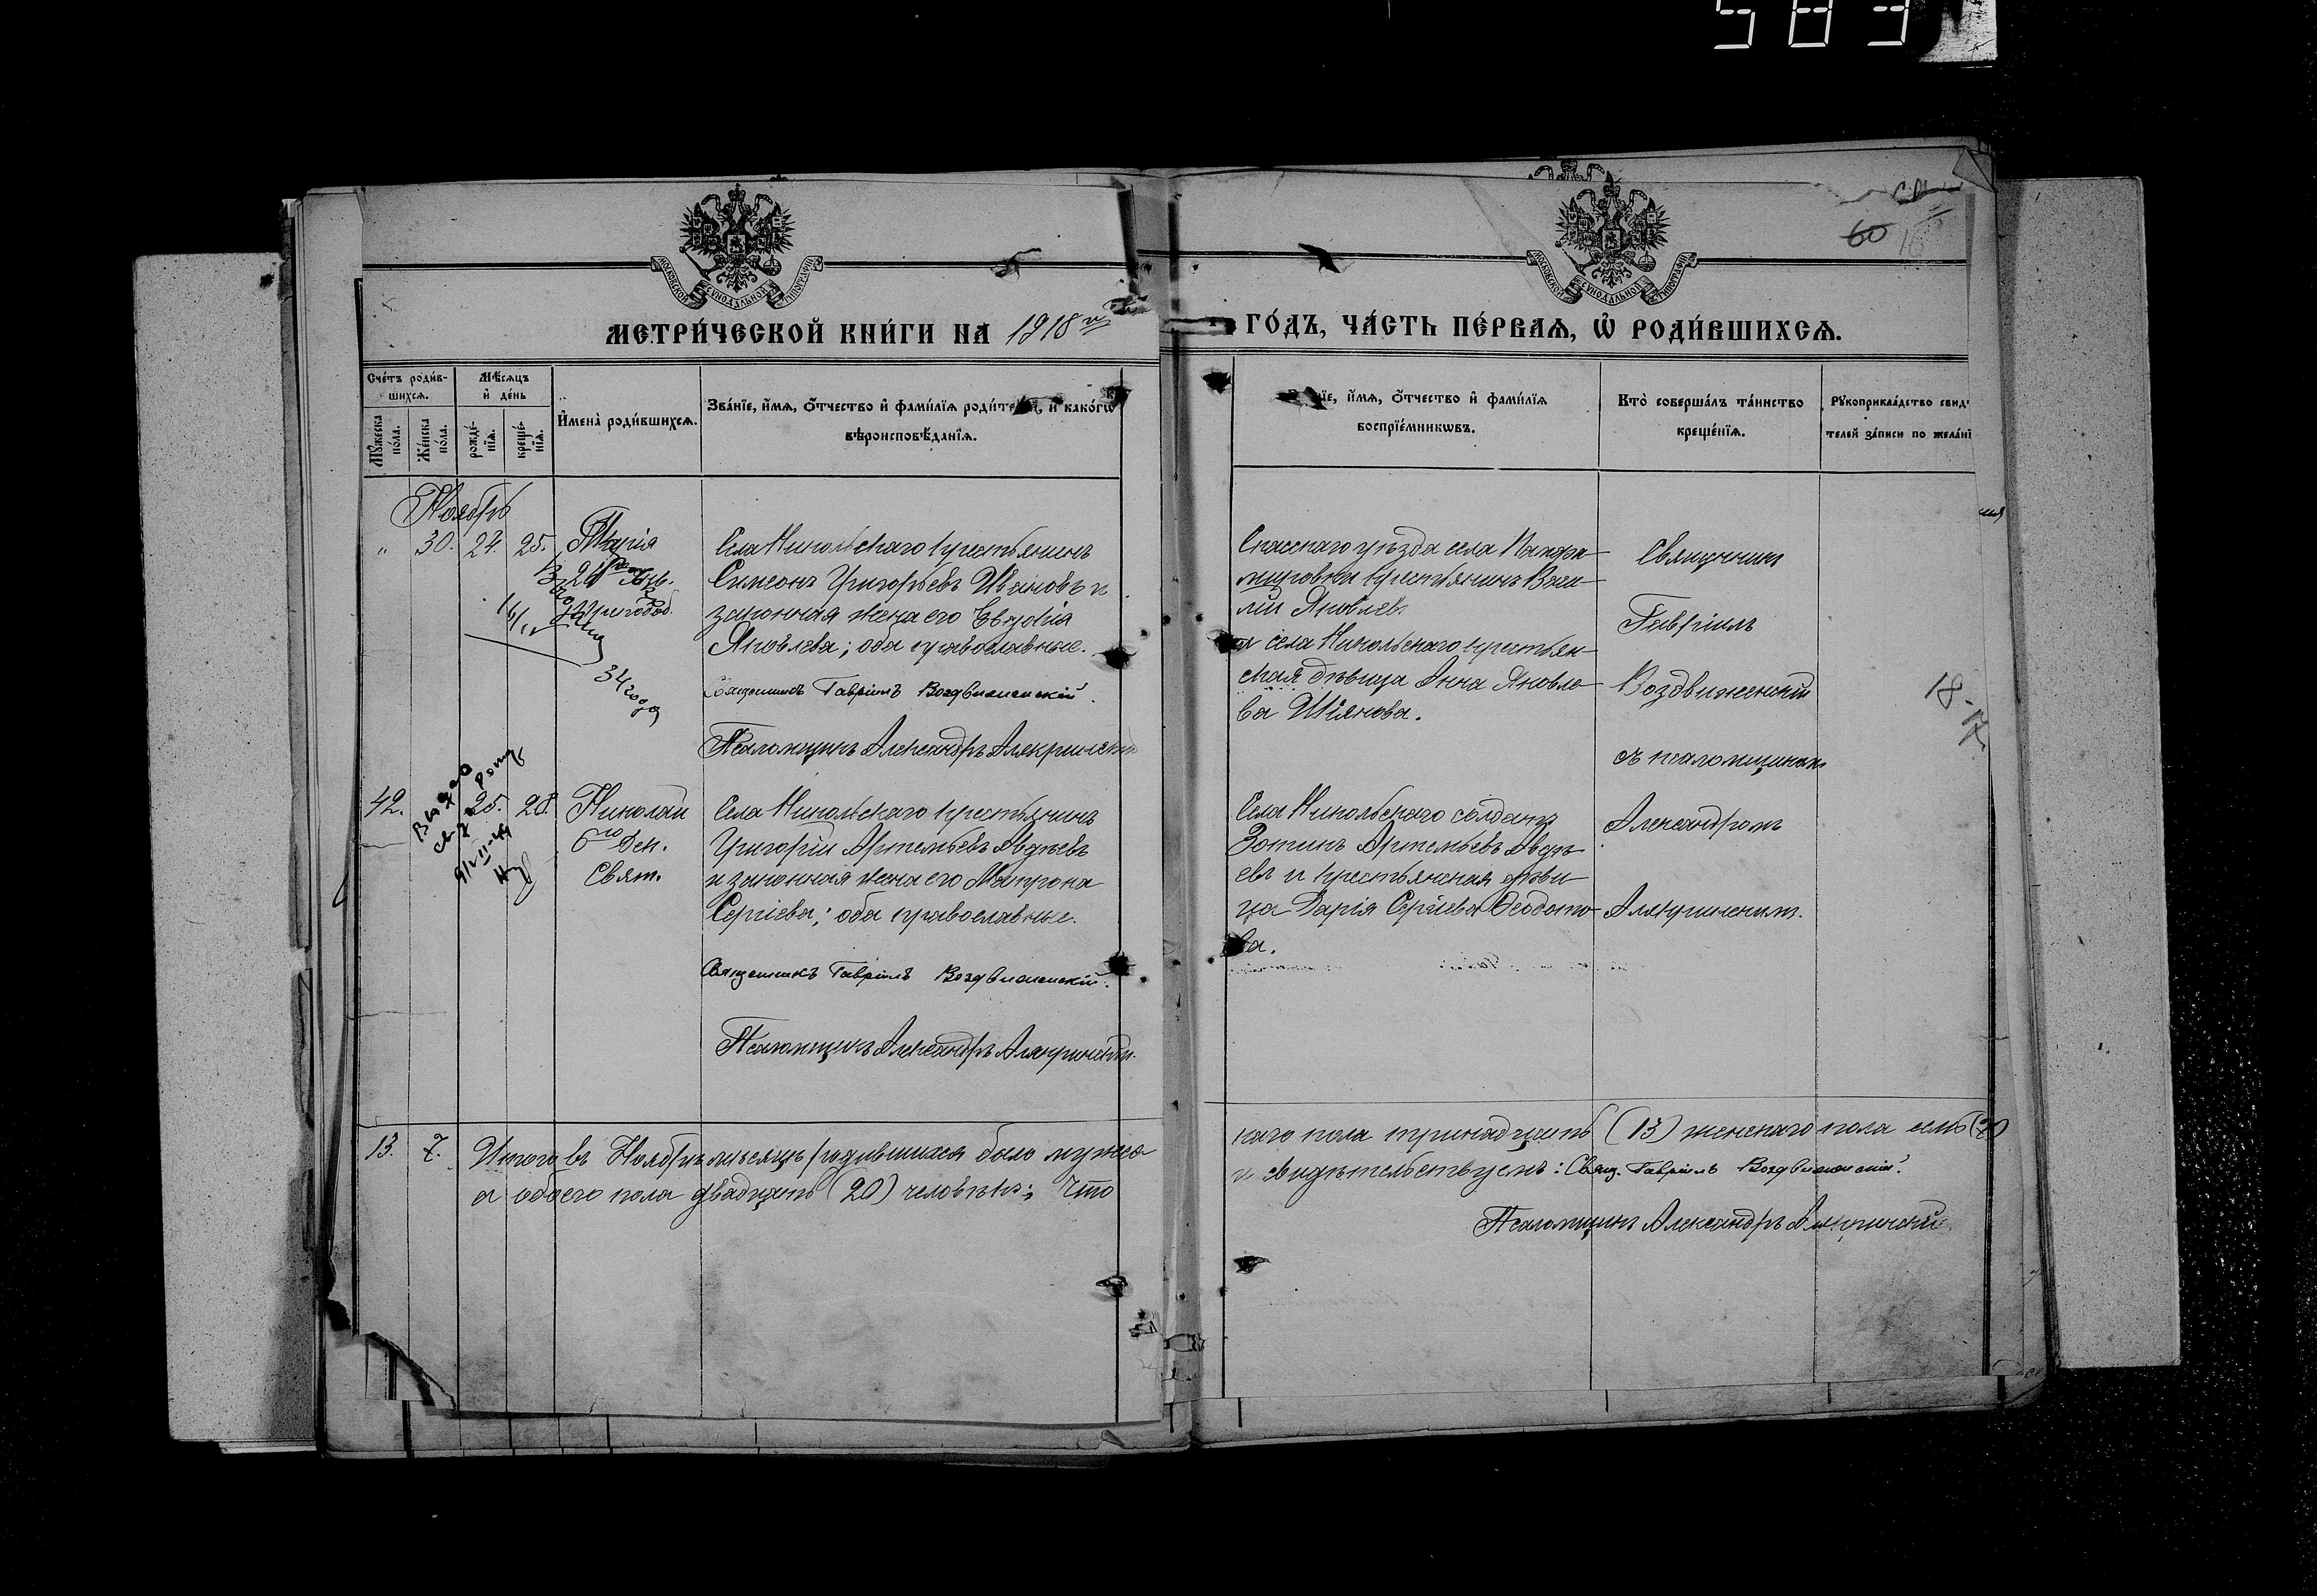 583
60 16
МОСКОВСКОЙ СУНОДАЛЬНОЙ ТИПОГРАФІИ
МОСКОВСКОЙ СУНОДАЛЬНОЙ ТИПОГРАФІИ
МЕТРИ́ЧЕСКОЙ КНИ́ГИ НА 1918 й
ГО́ДЪ, ЧА́СТЬ ПЕ́РВАѦ, Ѡ҆ РОДИ́ВШИХСѦ.
Сче́тъ роди́в-
шихсѧ.
Мꙋ́жеска по́ла.
Же́нска по́ла.
Мѣ́сѧцъ
и҆ де́нь
рожде́-
нїѧ.
креще́-
нїѧ.
И҆мена̀ роди́вшихсѧ.
Зва́нїе, и҆́мѧ, ѻ҆́тчество и҆ фами́лїѧ роди́телей, и како́гѡ
вѣроисповѣ́данїѧ.
и҆́мѧ, ѻ҆́тчество и҆ фами́лїѧ
воспрїе́мникѡвъ.
Кто̀ соверша́лъ та́инство
креще́нїѧ.
Рꙋкоприкла́дство свид
телей за́писи по жела́нї
Ноябрь
" 30. 24. 25. Марія
24 Янв.
34 года
Села Никольскаго крестьянинъ
Симеонъ Григорьевъ Шіяновъ и
законная жена его Евдокія
Яковлева; оба православные.
Священникъ Гавріилъ Воздвиженскій.
Псаломщикъ Александръ Алякринскій
Спасскаго уѣзда села
крестьянинъ Васи-
лій Яковлев
и села Никольскаго крестьян-
ская дѣвица Анна Яковле-
ва Шіянова.
Священникъ
Гавріилъ
Воздвиженскій
съ псаломщикомъ
Александромъ
Алякринскимъ.
18-
42. 25. 28. Николай
6го Дек.
Свят.
Выдано
Села Никольскаго крестьянинъ
Григорій Артемьевъ Авдѣевъ
и законная жена его Матрона
Сергіева; оба православные.
Священникъ Гавріилъ Воздвиженскій.
Псаломщикъ Александръ Алякринскій.
Села Никольскаго солдатъ
Зотикъ Артемьевъ Авдѣ-
евъ и крестьянская дѣви-
ца Дарія Сергіева Ѳеодото-
ва.
13. 7. Итого въ Ноябрѣ мѣсяцѣ родившихся было мужес-
каго пола тринадцать (13) женскаго пола семь (7)
а обоего пола двадцать (20) человѣкъ; Что
и свидѣтельствуемъ: Свящ. Гавріилъ Воздвиженскій.
Псаломщикъ Александръ Алякринскій.